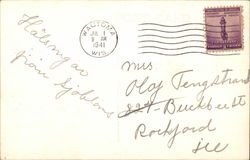 WAUTOMA
JUL 1
9 AM
1941
WIS.
Hälsningar
från Sjöblons
Mrs
Olaf Tengstrand
Buckbee St
Rockford
Ill